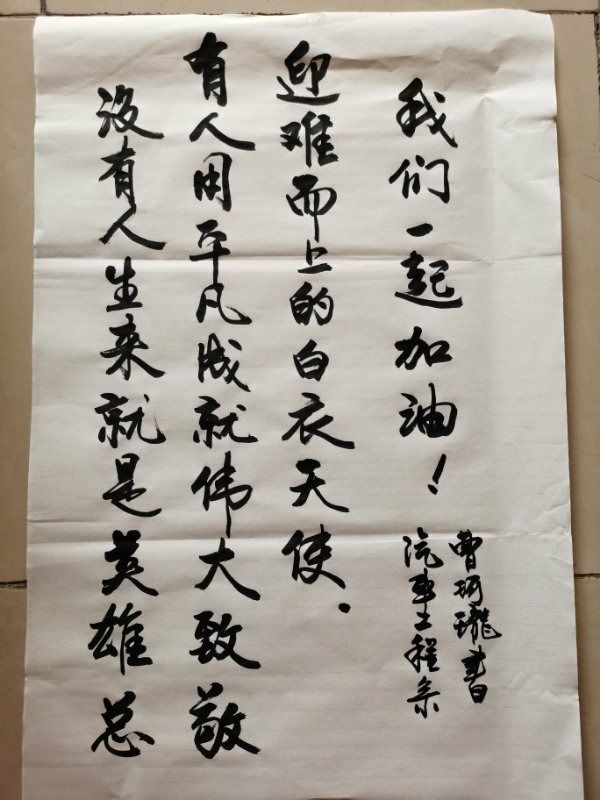 没有人生来就是英雄总
有人用平凡成就伟大致敬
迎难而上的白衣天使.
我们一起加油!
汽車工程系
曹珂瓏書